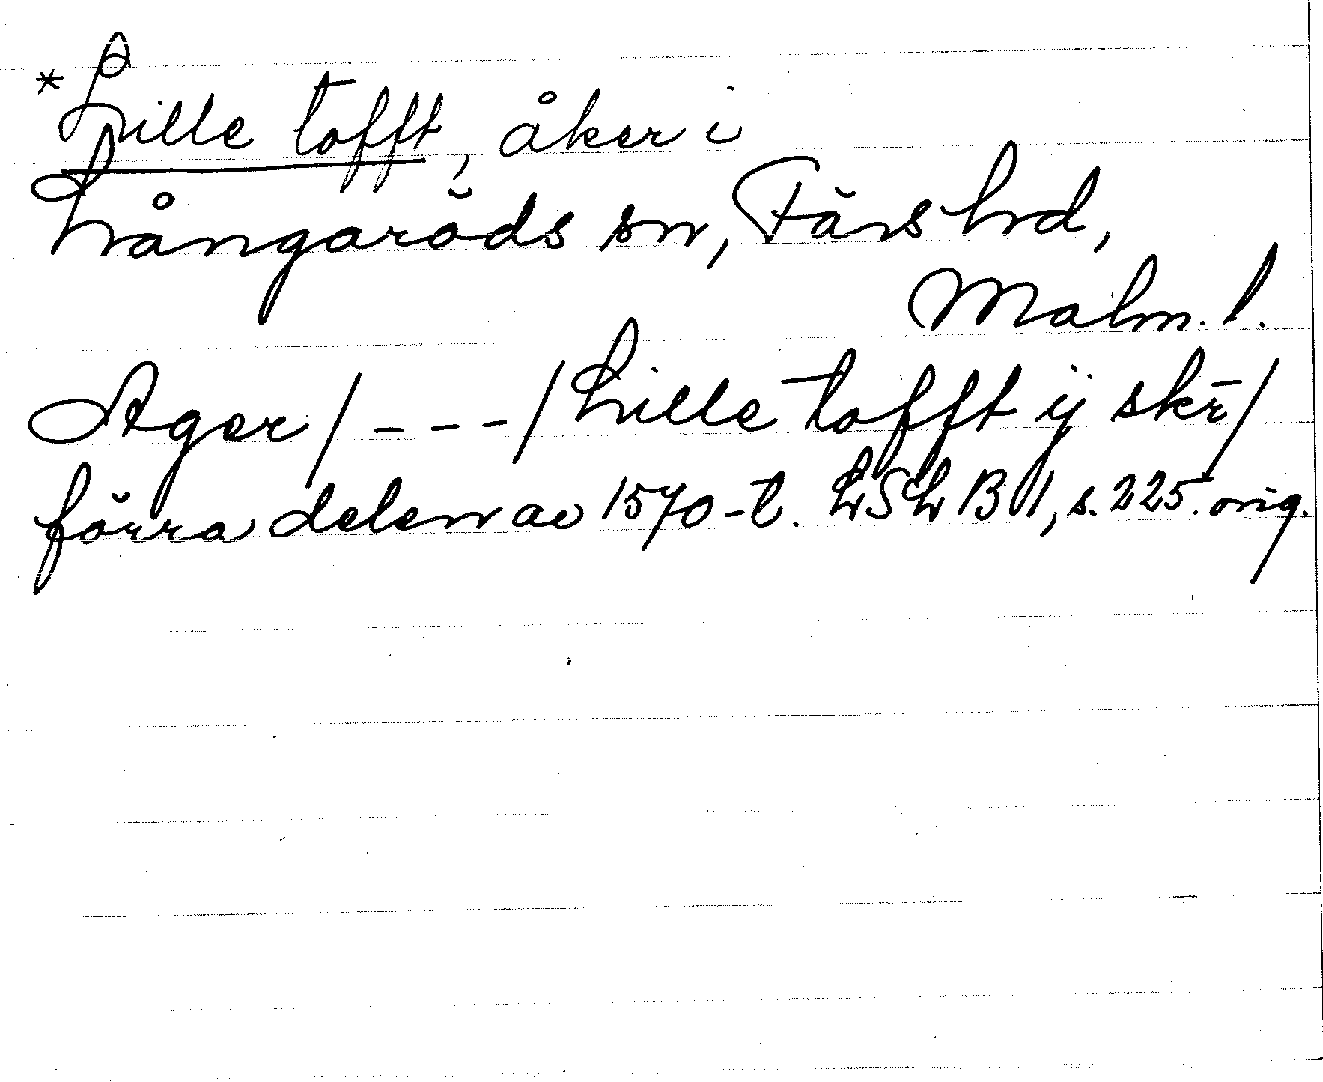 *Lille tofft, åker i
Långaröds sn, Färs hd,
Malm. l.
Ager/ - - - /Lille tofft ij skr̄/
förra delen av 1570-t. LSLB II, s. 225. orig.